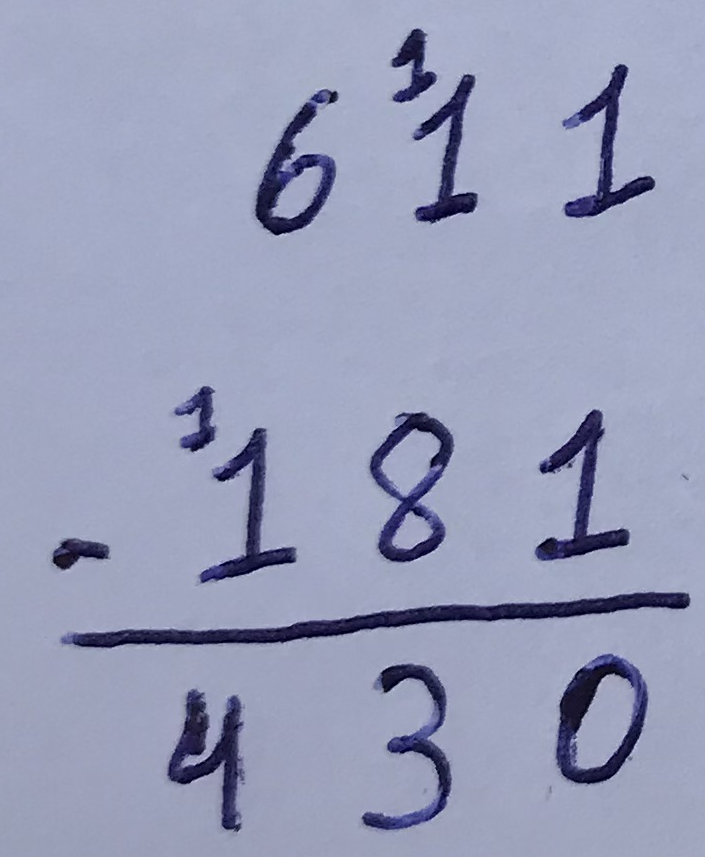 6 ¹1 1
- ¹1 8 1
4 3 0